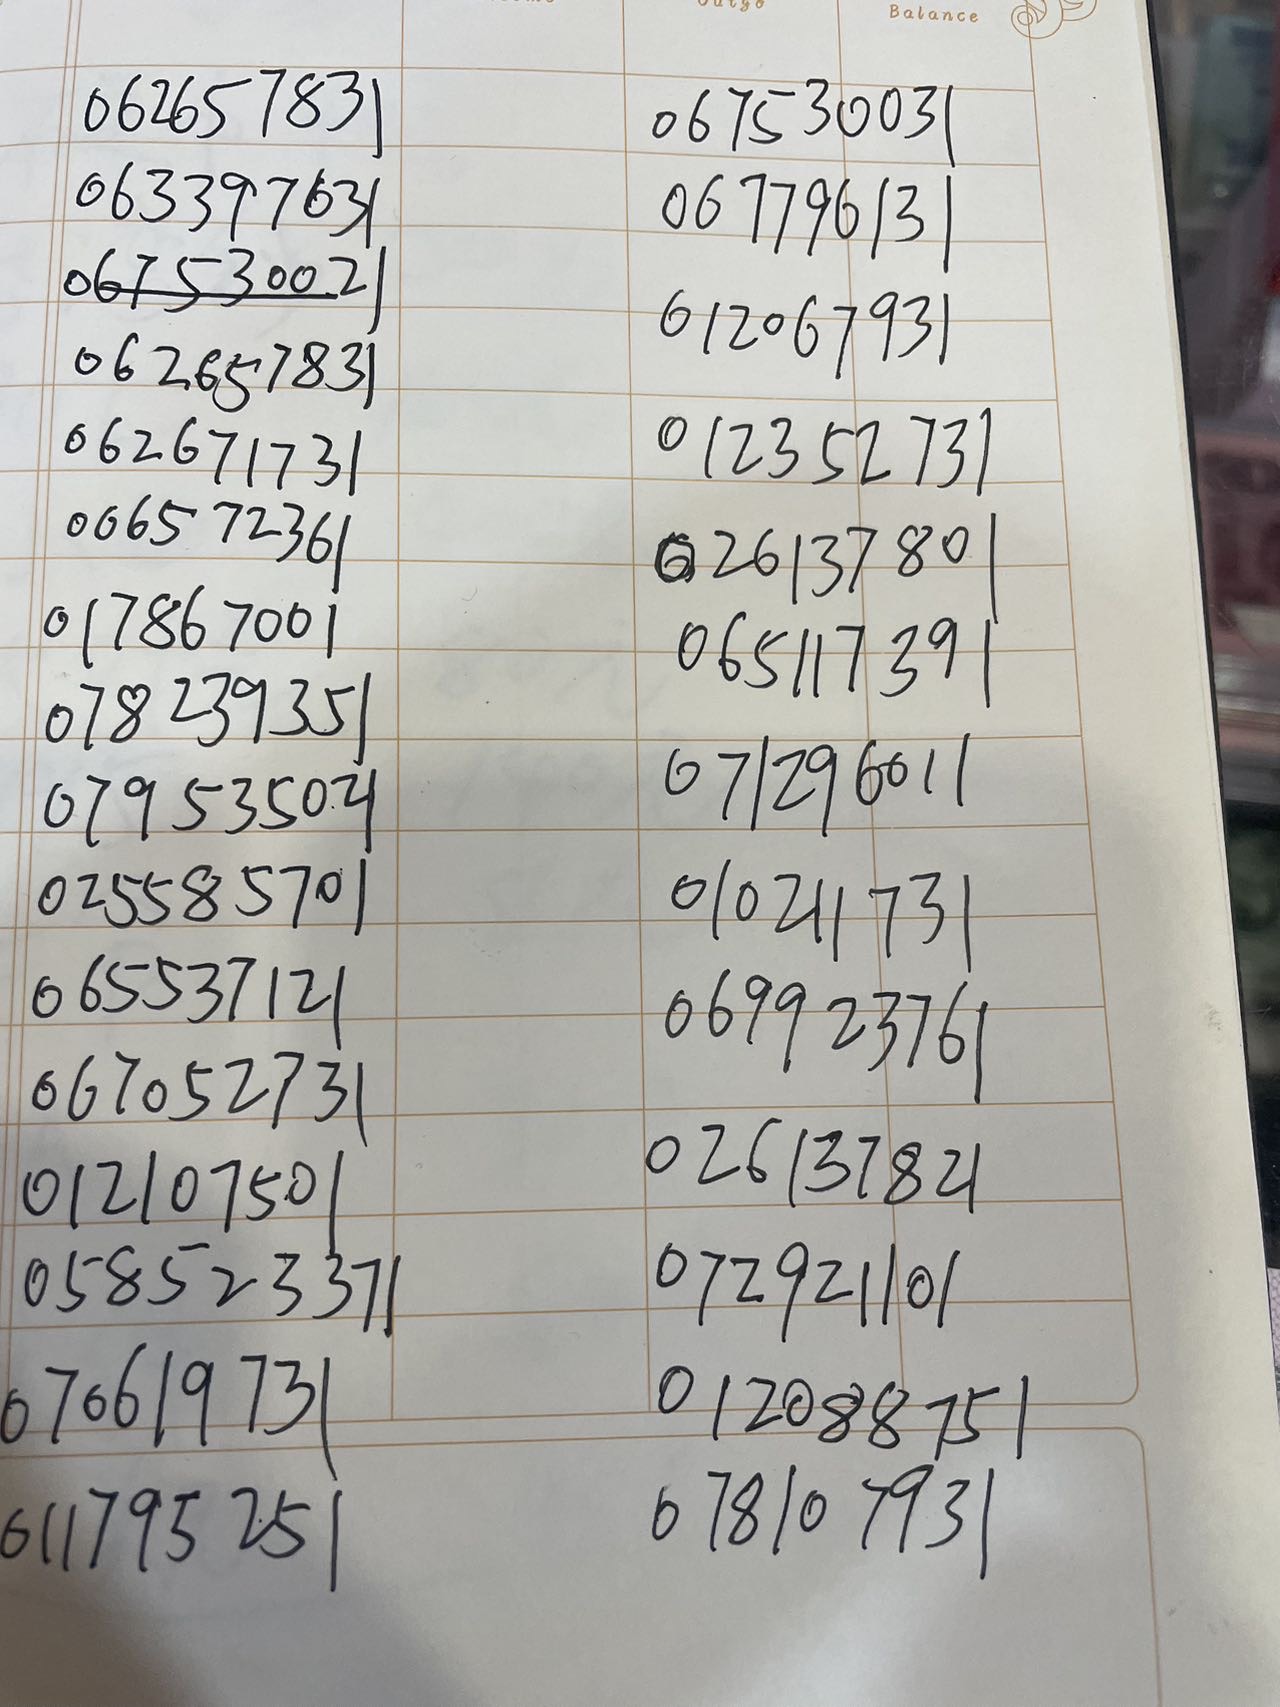 Outgo
Balance
062657831
063397631
067530021
062657831
062671731
006572361
017867001
078239351
079535021
025585701
065537121
067052731
012107501
058523371
070619731
011795251
067530031
067796131
012067931
012352731
026137801
065117391
071296011
010211731
069923761
026137821
072921101
012088751
078107931